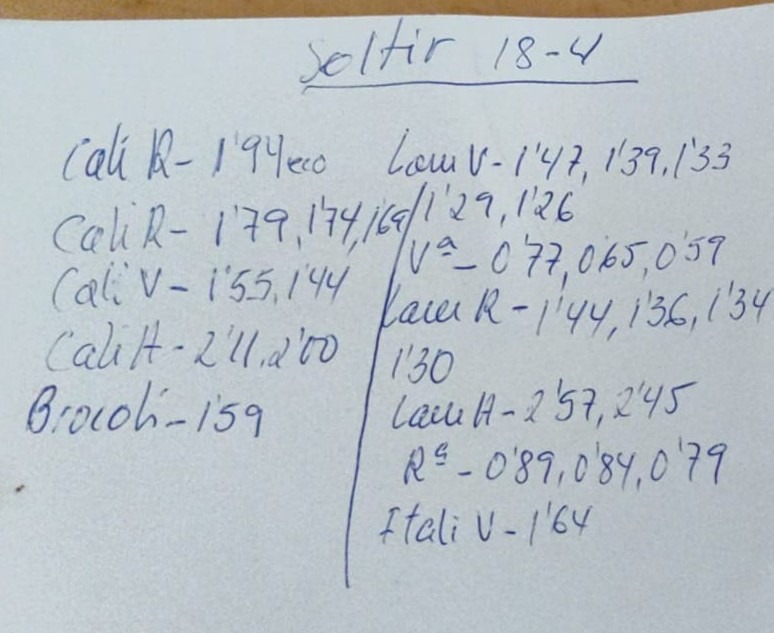 Soltir 18-4
Cali R - 1'94 eco
Cali R - 1'79, 1'74, 1'69
Cali V - 1'55, 1'44
Cali A - 2'11, 2'00
Brocoli - 1'59
Lam V - 1'47, 1'39, 1'33
1'29, 1'26
Vª - 0'77, 0'65, 0'59
Lam R - 1'44, 1'36, 1'34
1'30
Lam A - 2'57, 2'45
Rª - 0'89, 0'84, 0'79
Itali V - 1'64